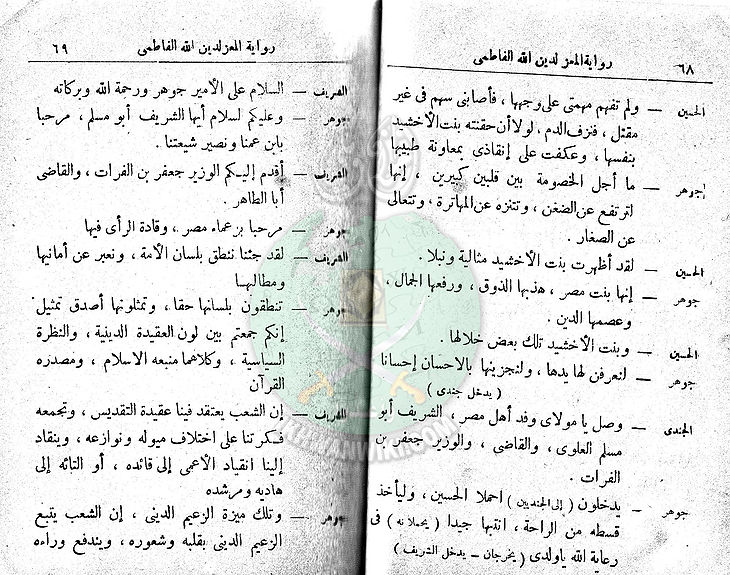 رواية المعز لدين الله الفاطمى ٦٨
الحسين — ولم تفهم مهمتى على وجهها ، فأصابنى سهم فى غير
مقتل ، فنزف الدم ، لولا أن حقنته بنت الأخشيد
بنفسها ، وعكفت على إنقاذى بمعاونة طبيبها
جوهر — ما أجل الخصومة بين قلبين كبيرين ، إنها
لترتفع عن الضغن ، وتتنزه عن المهاترة ، وتتعالى
عن الصغار .
الحسين — لقد أظهرت بنت الأخشيد مثالية ونبلا .
جوهر — إنها بنت مصر ، هذبها الذوق ، ورفعها الجمال ،
وعصمها الدين .
الحسين — وبنت الأخشيد تلك بعض خلالها .
جوهر — لنعرفن لها يدها ، ولنجزينها بالاحسان إحسانا
( يدخل جندى )
الجندى — وصل يا مولاى وفد أهل مصر ، الشريف أبو
مسلم العلوى ، والقاضى ، والوزير جعفر بن
الفرات .
جوهر — يدخلون ( إلى الجنديين ) احملا الحسين ، وليأخذ
قسطه من الراحة ، انتبها جيدا ( يحملانه ) فى
رعاية الله ياولدى ( يخرجان - يدخل الشريف )
رواية المعز لدين الله الفاطمى ٦٩
الشريف — السلام على الأمير جوهر ورحمة الله وبركاته
جوهر — وعليكم لسلام أيها الشريف أبو مسلم ، مرحبا
بابن عمنا ونصير شيعتنا .
الشريف — أقدم إليكم الوزير جعفر بن الفرات ، والقاضى
أبا الطاهر .
جوهر — مرحبا بزعماء مصر ، وقادة الرأى فيها
الشريف — لقد جئنا ننطق بلسان الأمة ، ونعبر عن أمانيها
ومطالبها
جوهر — تنطقون بلسانها حقا ، وتمثلونها أصدق تمثيل
إنكم جمعتم بين لون العقيدة الدينية ، والنظرة
السياسية ، وكلاهما منبعه الاسلام ، ومصدره
القرآن
الشريف — إن الشعب يعتقد فينا عقيدة التقديس ، وتجمعه
فكرتنا على اختلاف ميوله ونوازعه ، وينقاد
إلينا انقياد الأعمى إلى قائده ، أو التائه إلى
هاديه ومرشده
جوهر — وتلك ميزة الزعيم الدينى ، إن الشعب يتبع
الزعيم الدينى بقلبه وشعوره ، ويندفع وراءه
IKHWANWIKI.COM